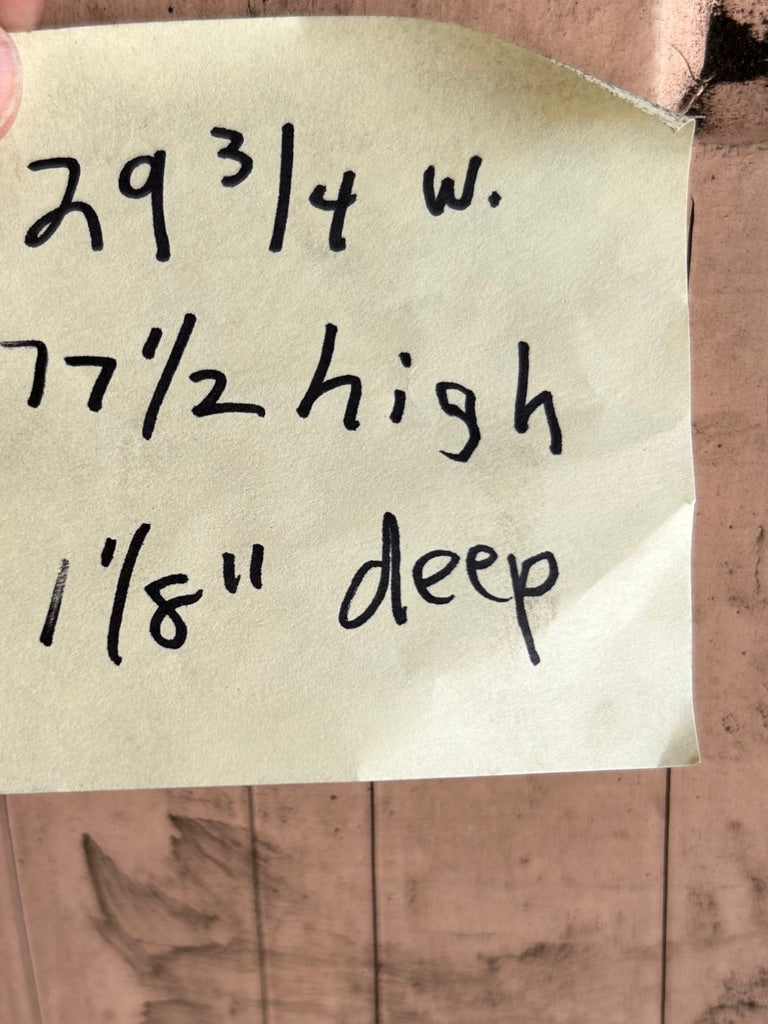 29 3/4 w.
77 1/2 high
1 1/8" deep